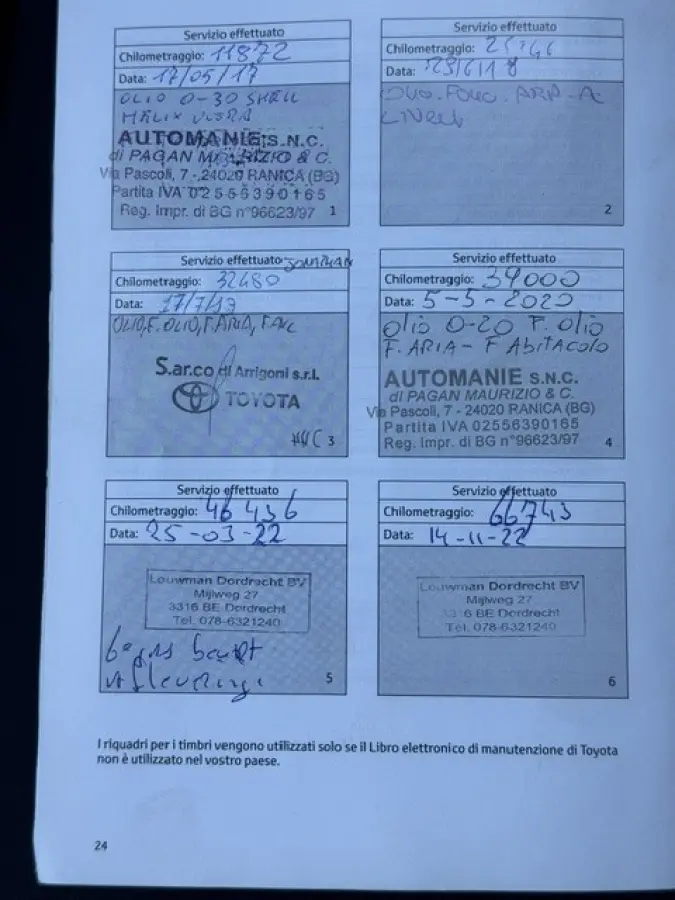 Servizio effettuato
Chilometraggio: 11872
Data: 17/05/17
OLIO 0-30 SHELL
HELIX ULTRA
AUTOMANIE S.N.C.
di PAGAN MAURIZIO & C.
Via Pascoli, 7 - 24020 RANICA (BG)
Partita IVA 02556390165
Reg. Impr. di BG n°96623/97
1
Servizio effettuato
Chilometraggio:
Data:
OLIO. ARIA
2
Servizio effettuato
Chilometraggio: 32480
Data: 17/7/19
OLIO, F. OLIO, F. ARIA,
S.ar.co di Arrigoni s.r.l.
TOYOTA
3
Servizio effettuato
Chilometraggio: 39000
Data: 5-5-2020
Olio 0-20 F. olio
F. ARIA - F Abitacolo
AUTOMANIE S.N.C.
di PAGAN MAURIZIO & C.
Via Pascoli, 7 - 24020 RANICA (BG)
Partita IVA 02556390165
Reg. Impr. di BG n°96623/97
4
Servizio effettuato
Chilometraggio: 46 436
Data: 25-03-22
Louwman Dordrecht BV
Mijlweg 27
3316 BE Dordrecht
Tel. 078-6321240
beurt
aflevering
5
Servizio effettuato
Chilometraggio: 66743
Data: 14-11-22
Louwman Dordrecht BV
Mijlweg 27
3316 BE Dordrecht
Tel. 078-6321240
6
I riquadri per i timbri vengono utilizzati solo se il Libro elettronico di manutenzione di Toyota
non è utilizzato nel vostro paese.
24